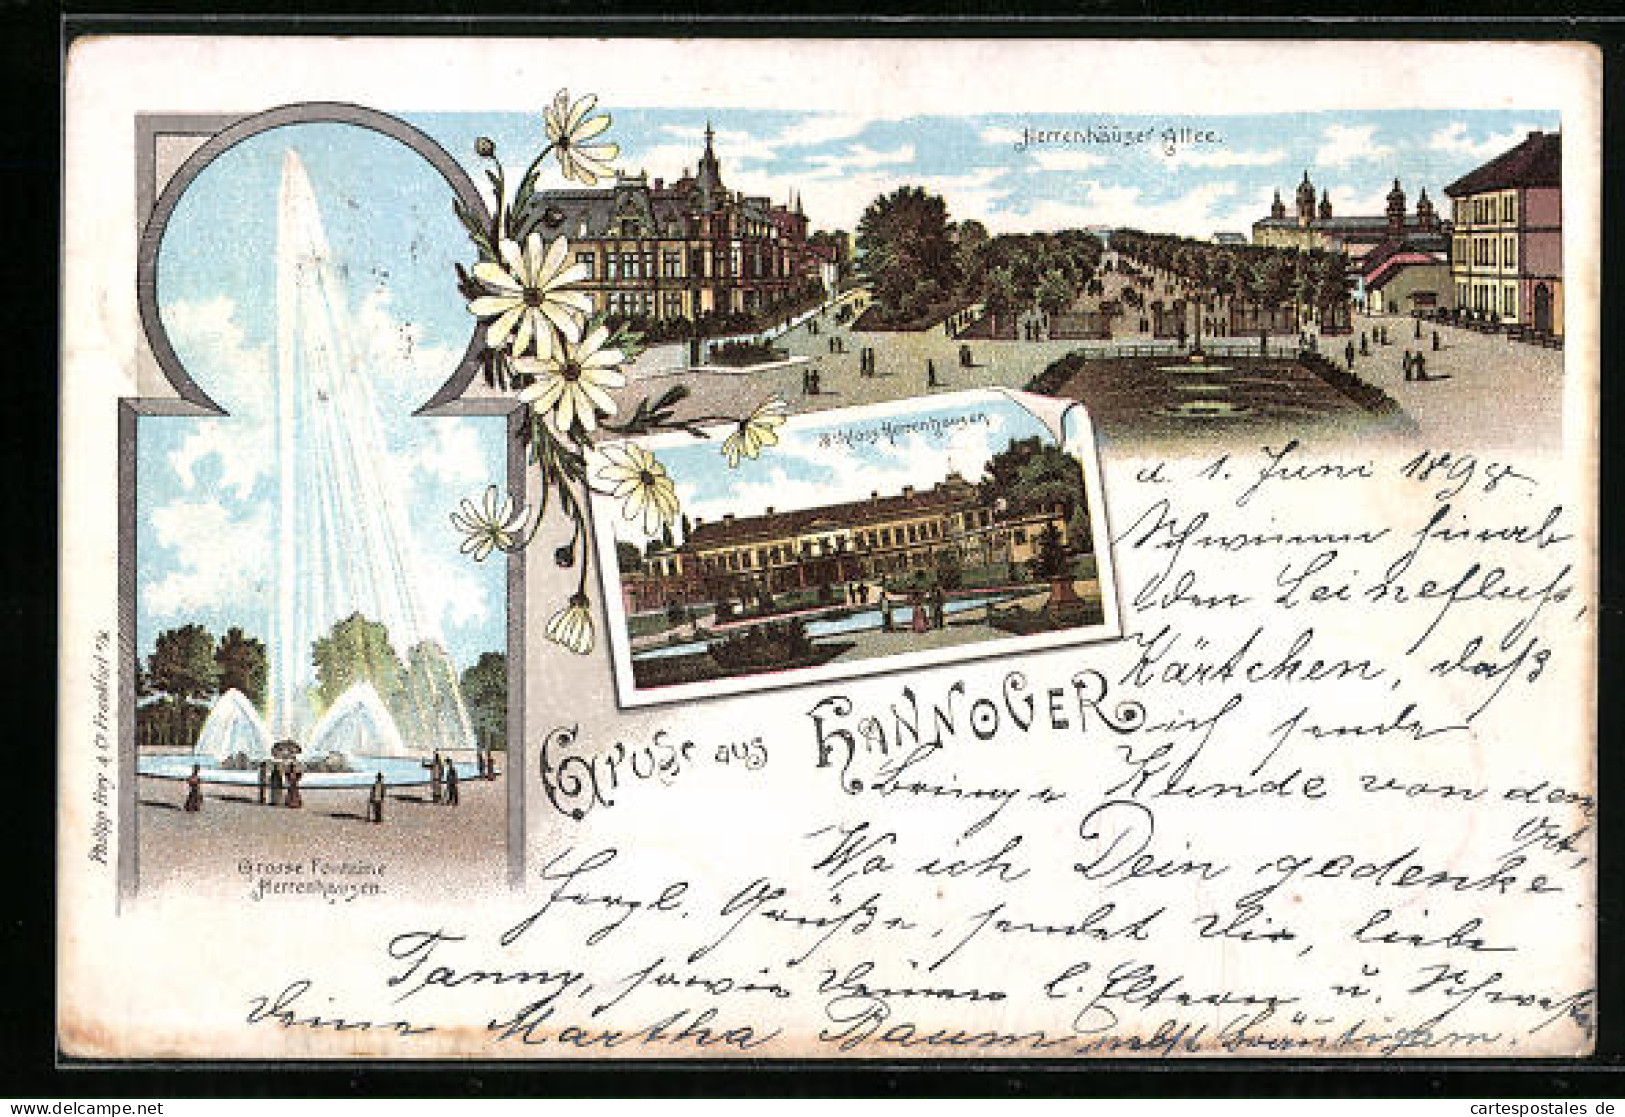 Herrenhäuser Allee.
Schloss Herrenhausen.
Grosse Fontaine
Herrenhausen.
Gruss aus HANNOVER
Philipp Frey & Co Frankfurt a/M
d. 1. Juni 1898.
Schwimm hinab
den Leinefluß,
Kärtchen, daß
ich sende
bringe Kunde von dem
Ort,
Wo ich Dein gedenke
Herzl. Grüße, sendet Dir, liebe
Tanny, sowie Deinen l. Eltern u. Schwester
Deine Martha Baum nebst Bräutigam.
cartespostales de